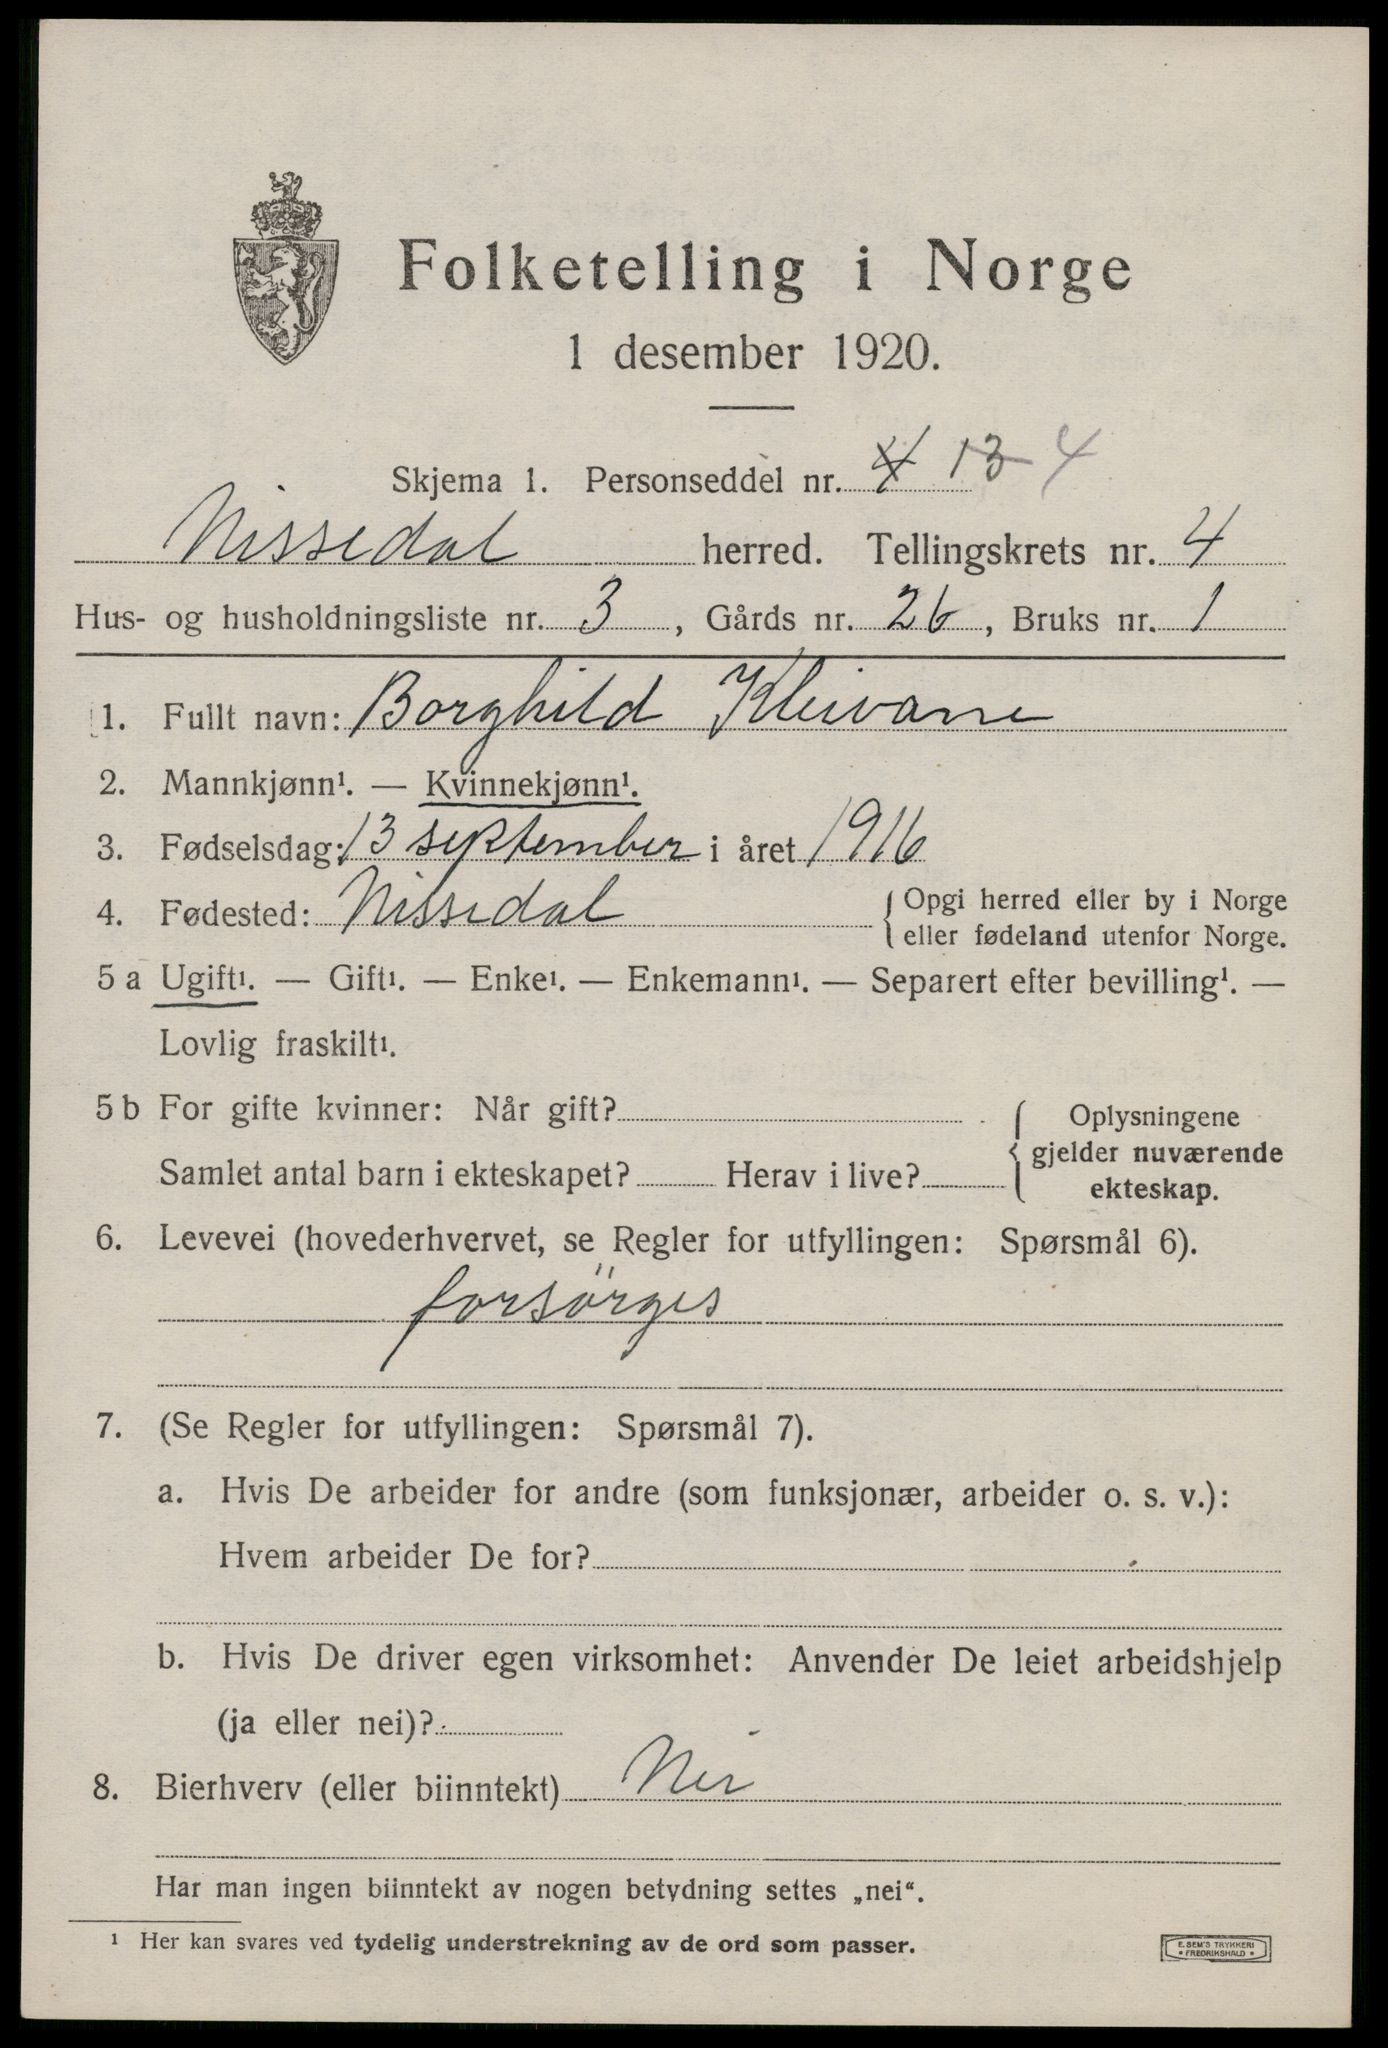 Folketelling i Norge
1 desember 1920.
Skjema 1. Personseddel nr. 4 13 4
Nissedal herred. Tellingskrets nr. 4
Hus- og husholdningsliste nr. 3, Gårds nr. 26, Bruks nr. 1
1. Fullt navn: Borghild Kleivane
2. Mannkjønn¹. — Kvinnekjønn¹.
3. Fødselsdag: 13 september i året 1916
4. Fødested: Nissedal { Opgi herred eller by i Norge
eller fødeland utenfor Norge.
5 a Ugift¹. — Gift¹. — Enke¹. — Enkemann¹. — Separert efter bevilling¹. —
Lovlig fraskilt¹.
5 b For gifte kvinner: Når gift?
Samlet antal barn i ekteskapet? Herav i live?
{ Oplysningene
gjelder nuværende
ekteskap.
6. Levevei (hovederhvervet, se Regler for utfyllingen: Spørsmål 6).
forsörges
7. (Se Regler for utfyllingen: Spørsmål 7).
a. Hvis De arbeider for andre (som funksjonær, arbeider o. s. v.):
Hvem arbeider De for?
b. Hvis De driver egen virksomhet: Anvender De leiet arbeidshjelp
(ja eller nei)?
8. Bierhverv (eller biinntekt) Nei
Har man ingen biinntekt av nogen betydning settes „nei“.
¹ Her kan svares ved tydelig understrekning av de ord som passer.
E. SEM'S TRYKKERI
• FREDRIKSHALD •